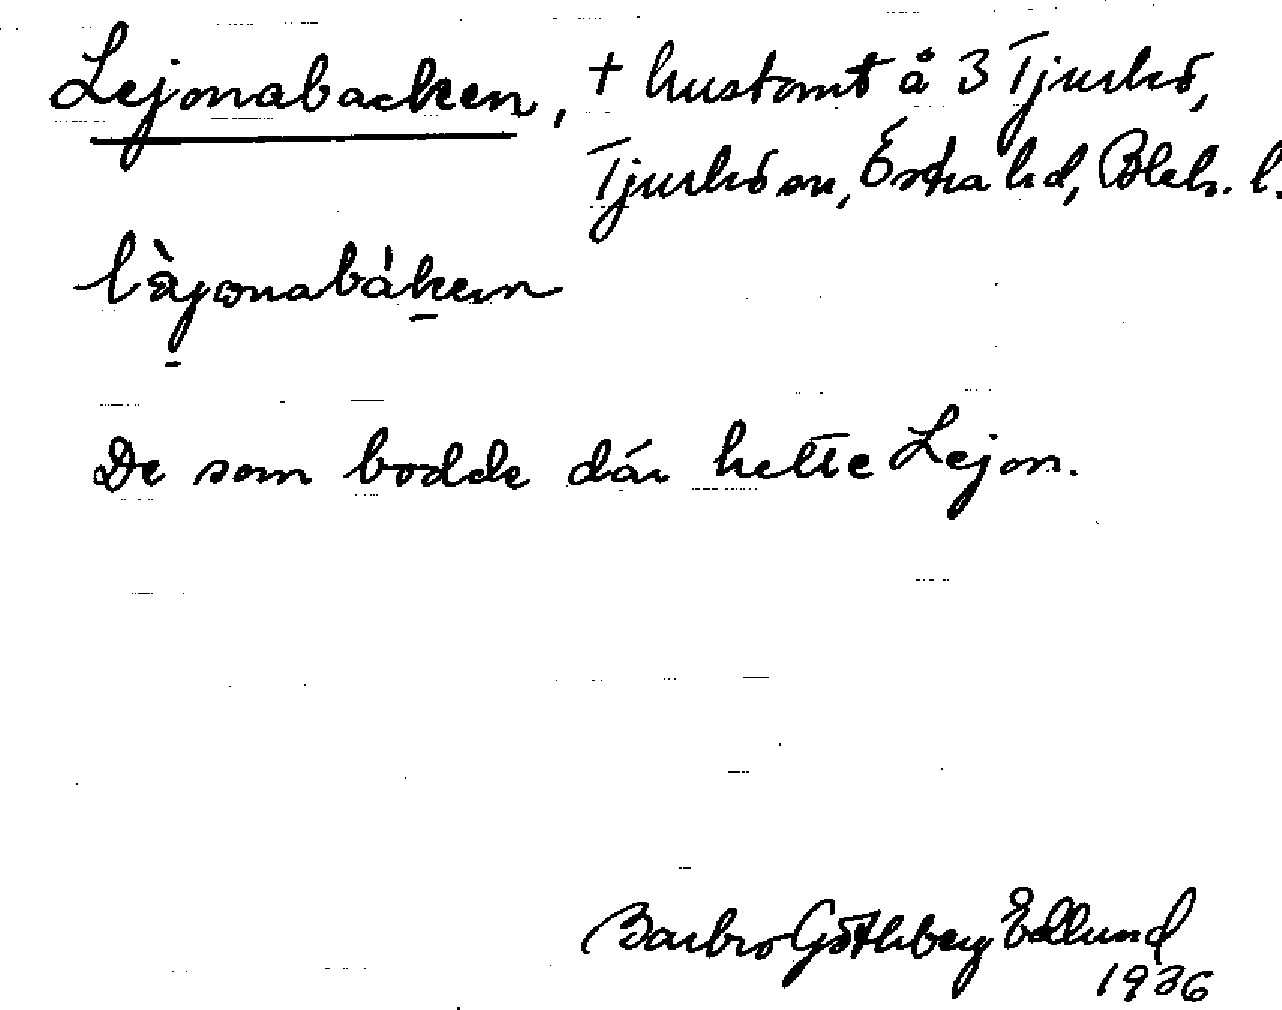 Lejonabacken, + hustomt å 3 Tjurkö,
Tjurkö sn, Östra hd, Blek. l.
làjonabáken
De som bodde där hette Lejon.
Barbro Göthberg Edlund
1936